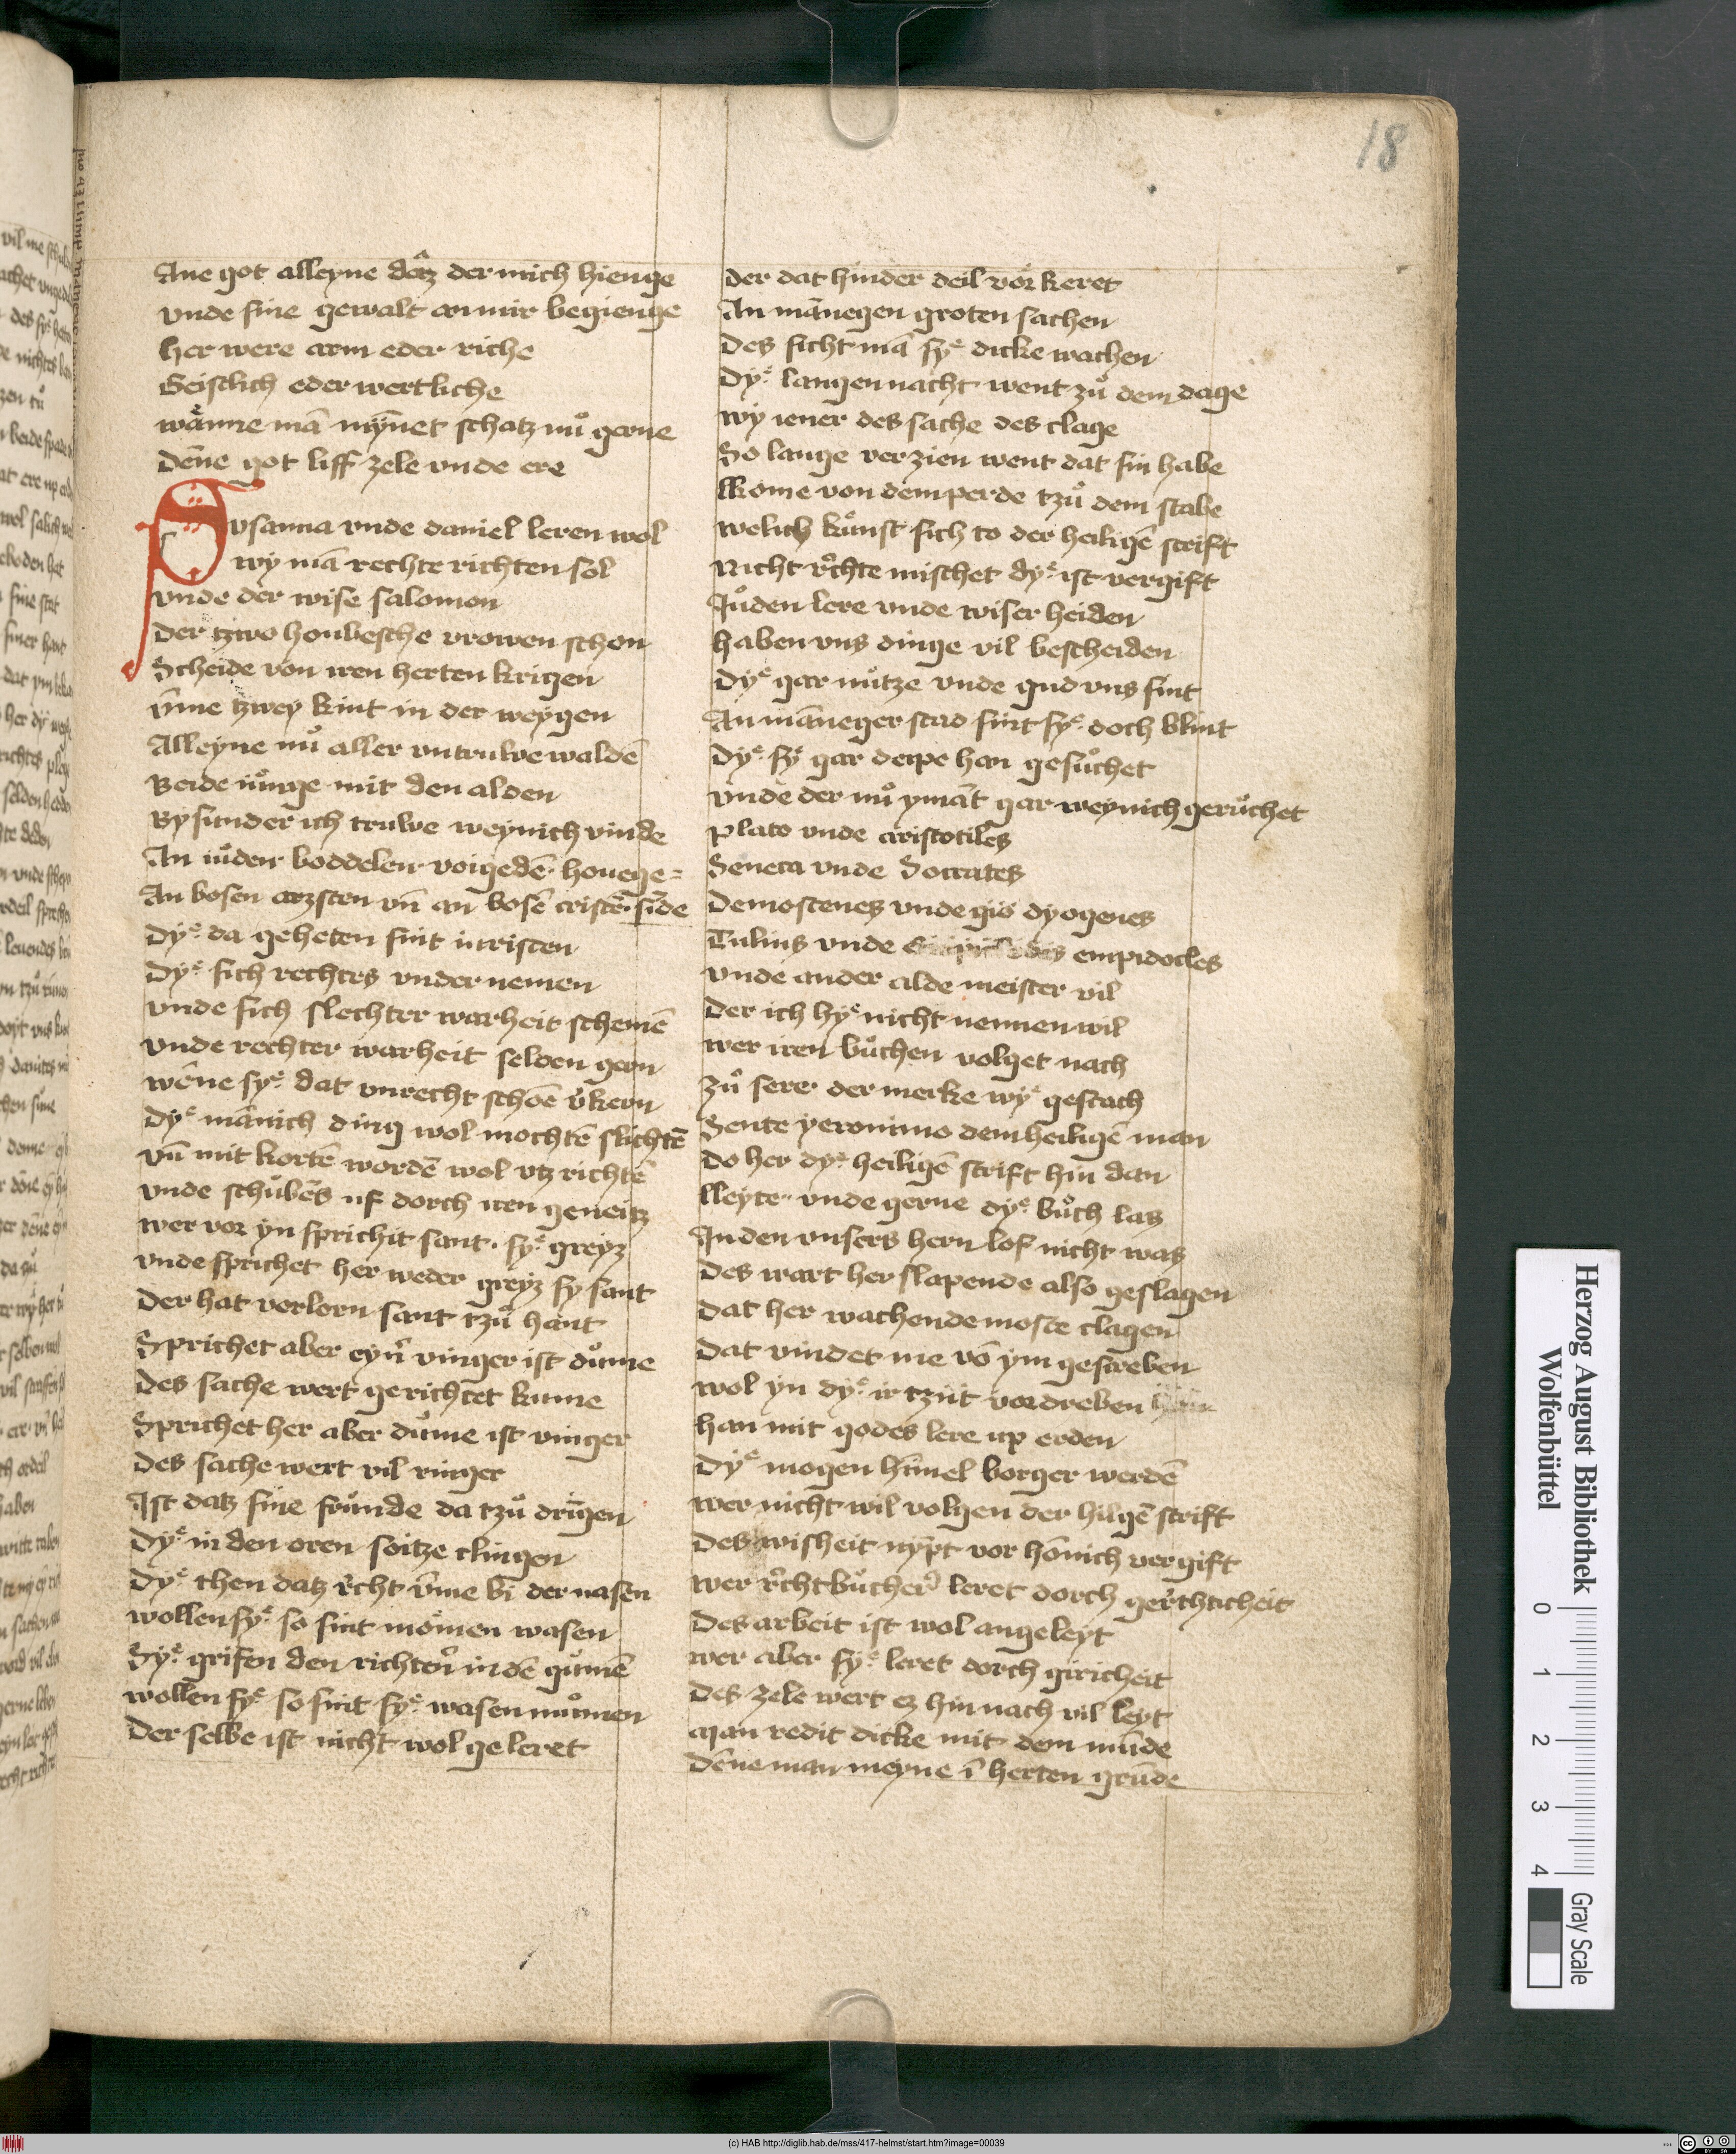 18
Ane got alleyne datz der mich hienge
vnde sine gewalt an mir begienge
her were arm eder riche
Geistlich eder wertliche
wänne mā mȳnet schatz nuͦ gerne
Dēne got liff zele vnde ere
Svsanna vnde daniel leren wol
wy mā rechte richten sol
vnde der wise salomon
Der tzwo houbesche vrowen schon
Scheide von iren herten krigen
v̄me tzwey kint in der weygen
Alleyne nuͦ aller vntruwe waldē
Beide iuͦnge mit den alden
By sunder ich truwe weynich vinde
An iuͦden boddelen voigedē houege
An bosen arzsten vn̄ an bosē cristē sīde
Dyͤ da geheten sint iuristen
Dyͤ sich rechtes vnder nemen
vnde sich slechter warheit schemē
vnde rechter warheit selden gern
wēne syͤ dat vnrecht schōe v̓kern
Dyͤ mānich ding wol mochtē slichtē
vn̄ mit kortē wordē wol vtz richtē
vnde schubēs uf dorch iren geneitz
wer vor yn sprichit sant syͤ greyz
vnde sprichet her weder greyz sy sant
Der hat verlorn sant tzuͦ hant
Sprichet aber eyn̓ vinger ist duͦme
Des sache wert gerichtet kume
Sprichet her aber duͦme ist vinger
Des sache wert vil ringer
Ist datz sine fruͦnde da tzuͦ dringen
Dyͤ in den oren soitze clingen
Dyͤ then datz r̓cht v̄me bi der nasen
wollen syͤ so sint mömen wasen
Syͤ grifen den richter̓ in dē guͦmē
wollen syͤ so sint syͤ wasen muͦmen
Der selbe ist nicht wol geleret
Der dat hinder deil vor keret
An mānegen groten sachen
Des sicht mā syͤ dicke wachen
Dyͤ langen nacht went zuͦ dem dage
wy iener des sache des clage
So lange verzien went dat sin habe
kome von dem perde tzuͦ dem stabe
welich kuͦnst sich to der heiligē scrift
Nicht r̓chte mischet dyͤ ist vergift
Juͦden lere vnde wiser heiden
haben vns dinge vil bescheiden
Dyͤ gar nuͦtze vnde gud vns sint
An māneger stad sint syͤ doch blint
Dyͤ syͤ gar deipe han gesuͦchet
vnde der nuͦ ymāt gar weynich geruͦchet
Plato vnde aristotiles
Seneca vnde Socrates
Demostenes vnde gio dyogenes
Tulius vnde empidocles
vnde ander alde meister vil
Der ich hyͤ nicht nennen wil
wer iren buͦchen volget nach
zuͦ sere der merke wyͤ gescach
Sente yeronimo dem heiligē man
Do her dyͤ heiligē scrift hin dan
lleyte vnde gerne dyͤ buͦch las
In den vnsers hern lof nicht was
Des wart her slapende also geslagen
Dat her wachende moste clagen
Dat vindet me vō ym gescreben
wol yn dyͤ ir tzūt vordreben
han mit godes lere up erden
Dyͤ mogen hīmel borger werdē
wer nicht wil volgen der hilgē scrift
Des wisheit nȳpt vor hōnich vergift
wer r̓cht buͦcher̓ leret dorch ger̓chticheit
Des arbeit ist wol angeleyt
wer aber syͤ leret dorch giricheit
Des zele wert ez hin nach vil leyt
Man redit dicke mit dem mūde
Dēne man meyne ī herten grūde
Herzog August Bibliothek
Wolfenbüttel
0 1 2 3 4
Gray Scale
(c) HAB http://diglib.hab.de/mss/417-helmst/start.htm?image=00039